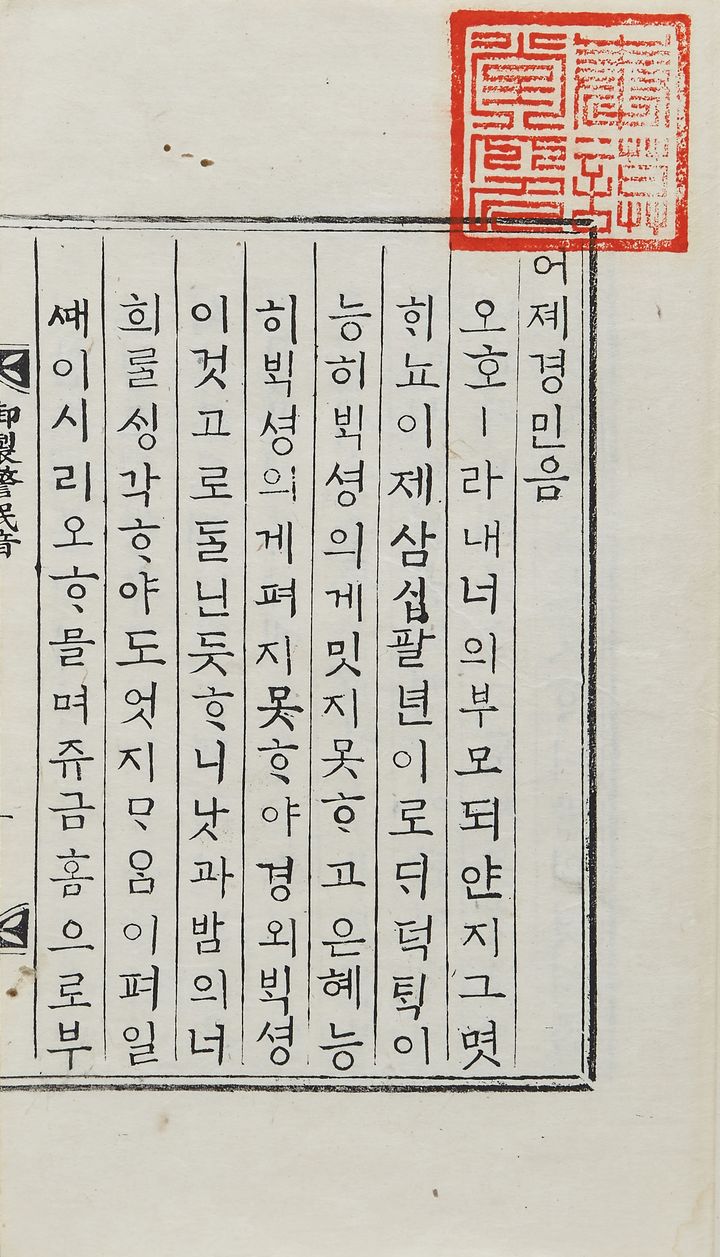 어졔경민음
오호ㅣ라내너의부모되얀지그몃
ᄒᆡ뇨이졔삼십팔년이로ᄃᆡ덕ᄐᆡᆨ이
능히ᄇᆡᆨ셩의게밋지못ᄒᆞ고은혜능
히ᄇᆡᆨ셩의게펴지못ᄒᆞ야경외ᄇᆡᆨ셩
이것고로돌닌듯ᄒᆞ니낫과밤의너
희ᄅᆞᆯᄉᆡᆼ각ᄒᆞ야도엇지ᄆᆞᄋᆞᆷ이펴일
ᄯᅢ이시리오ᄒᆞ믈며쥬금홈으로부
御製警民音
一